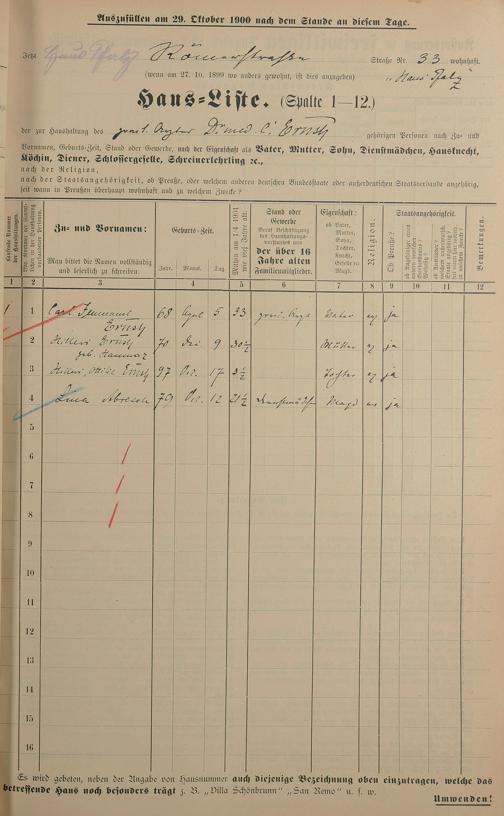 Auszufüllen am 29. Oktober 1900 nach dem Stande an diesem Tage.
Jetzt Haus Pfalz Römerstrasse Straße Nr. 33 wohnhaft.
(wenn am 27. 10. 1899 wo anders gewohnt, ist dies anzugeben) "Haus Pfalz"
Haus-Liste. (Spalte 1—12.)
der zur Haushaltung des pract. Arztes Dr med. C. Ernst gehörigen Personen nach Zu- und
Vornamen, Geburts-Zeit, Stand oder Gewerbe, nach der Eigenschaft als Vater, Mutter, Sohn, Dienstmädchen, Hausknecht,
Köchin, Diener, Schlossergeselle, Schreinerlehrling ꝛc.,
nach der Religion,
nach der Staatsangehörigkeit, ob Preuße, oder welchem anderen deutschen Bundesstaate oder außerdeutschen Staatsverbande angehörig,
seit wann in Preußen überhaupt wohnhaft und zu welchem Zwecke?
Laufende Nummer der Haushaltungen.
Zu- und Vornamen:
Man bittet die Namen vollständig und leserlich zu schreiben.
Geburts-Zeit.
Jahr. Monat. Tag.
Mithin am 1/4 1901 wie viel Jahre alt.
Stand oder
Gewerbe
der über 16
Jahre alten
Familienmitglieder.
Eigenschaft:
ob Vater,
Mutter,
Sohn,
Tochter,
Knecht,
Geselle od.
Magd.
Religion.
Staatsangehörigkeit.
Ob Preuße?
Bemerkungen.
1 2 3 4 5 6 7 8 9 10 11 12
1 1 Carl Emanuel 68 April 5 33 pract. Arzt Vater ev ja
Ernst
2 Ernst 70 9 30½ Mutter ev ja
geb.
3 Ernst 97 17 3½ Tochter ev ja
4 Lina 79 12 21½ Dienstmädchen Magd ev ja
5
6
7
8
9
10
11
12
13
14
15
16
Es wird gebeten, neben der Angabe von Hausnummer auch diejenige Bezeichnung oben einzutragen, welche das
betreffende Haus noch besonders trägt z. B. "Villa Schönbrunn" "San Remo" u. s. w.
Umwenden!